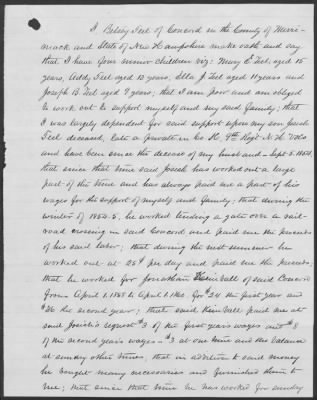 I Betsey Teel of Concord in the County of Merri-
mack and State of New Hampshire make oath and say
that I have four minor children viz: Mary E. Teel, aged 15
years, Addy Teel aged 13 years, Ella J. Teel aged 11 years and
Joseph B. Teel aged 9 years; that I am poor and am obliged
to work out to support myself and my said family; that
I was largely dependent for said support upon my son
Teel deceased, late a private in Co H. 7th Regt. N. H. Vols
and have been since the decease of my husband - Sept. 5. 1854,
that since that time said Josiah has worked out a large
part of the time and has always paid me a part of his
wages for the support of myself and family; that during the
winter of 1854.5. he worked tending a gate over a rail-
road crossing in said Concord and paid me the proceeds
of his said labor; that during the next summer he
worked out at 25¢ per day and paid me the proceeds;
that he worked for Jonathan Kimball of said Concord
from April 1. 1858 to April 1. 1860 for $24 the first year and
$26 the second year; that said Kimball paid me at
said Josiah's request $3 of the first year's wages and $8
of the second year's wages - $3 at one time and the balance
at sundry other times; that in addition to said money
he bought many necessaries and furnished them to
me; that since that time he has worked for sundry